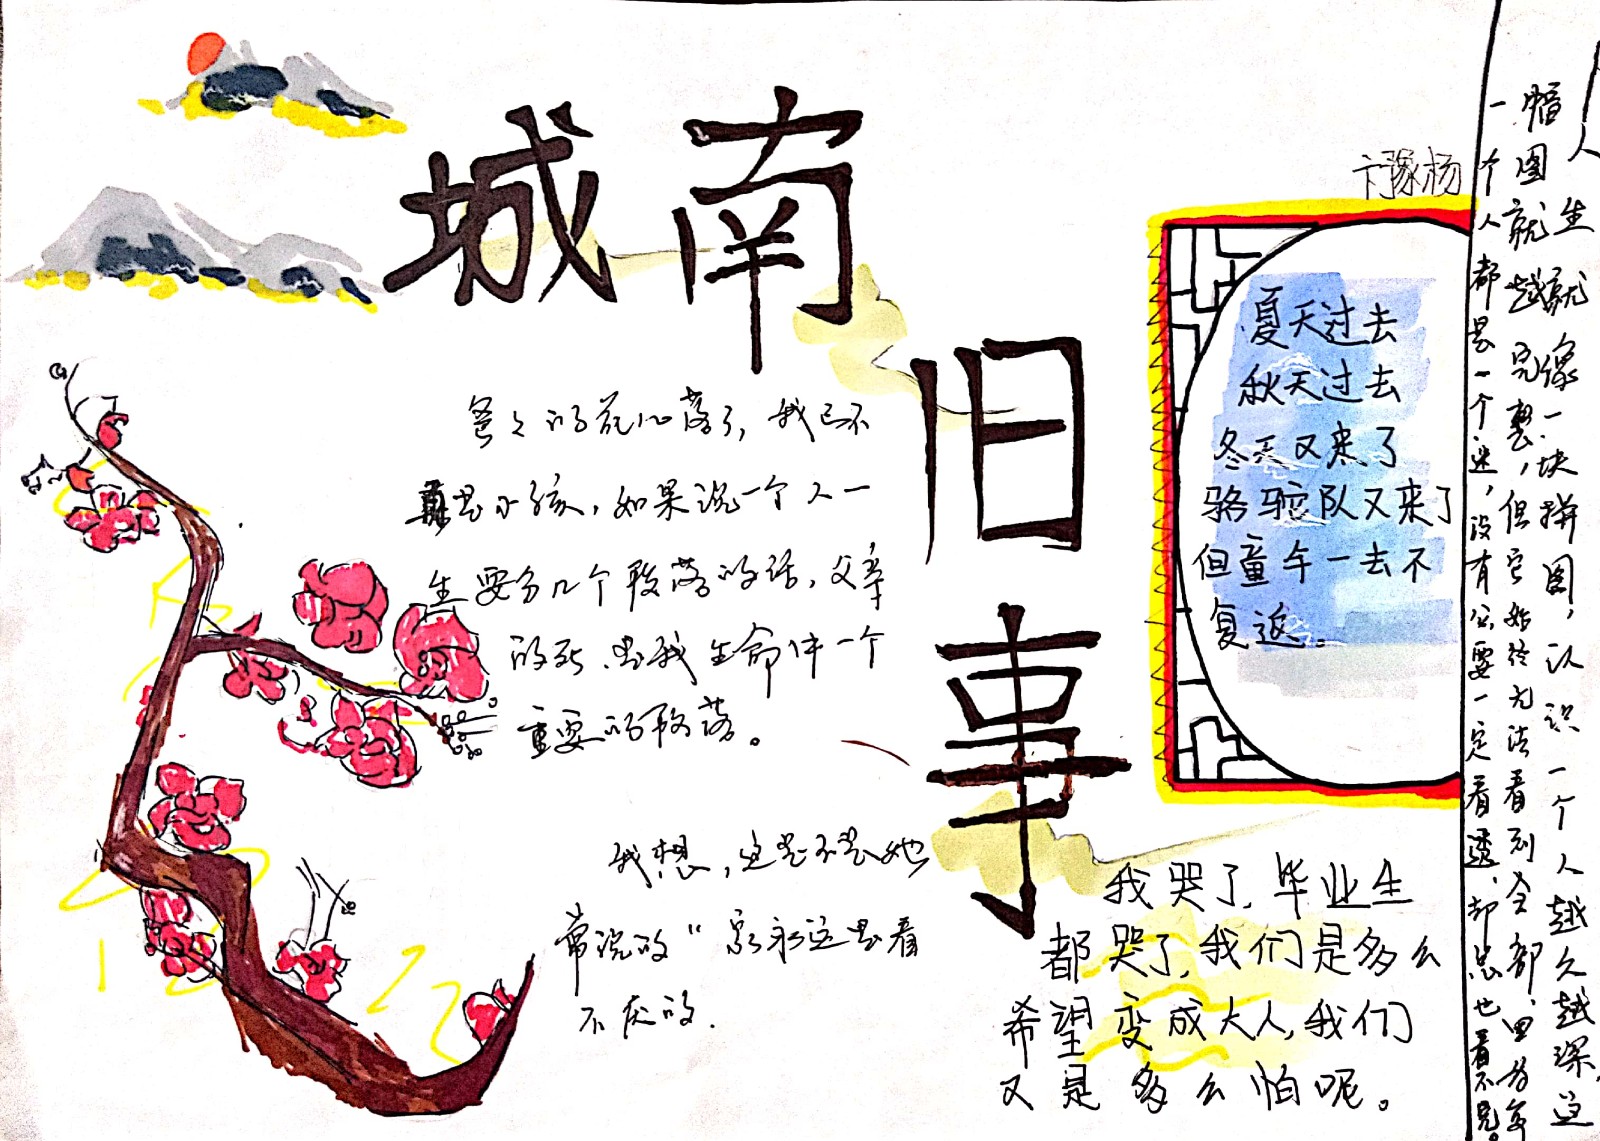 城南
旧
事
卞豫杨
夏天过去
秋天过去
冬天又来了
骆驼队又来了
但童年一去不
复返。
爸々的花儿落了，我已不
再是小孩，如果说一个人一
生要分几个段落的话，父亲
的死，是我生命中一个
重要的段落。
我想，这是不是她
常说的“家永远是看
不厌的.
我哭了，毕业生
都哭了，我们是多么
希望变成大人，我们
又是多么怕呢。
人生就像一块拼图，认识一个人越久越深，这
幅图就越完整，但它始终无法看到全部，因为每
一个人都是一个迷，没有必要一定看透，却总也看不完。